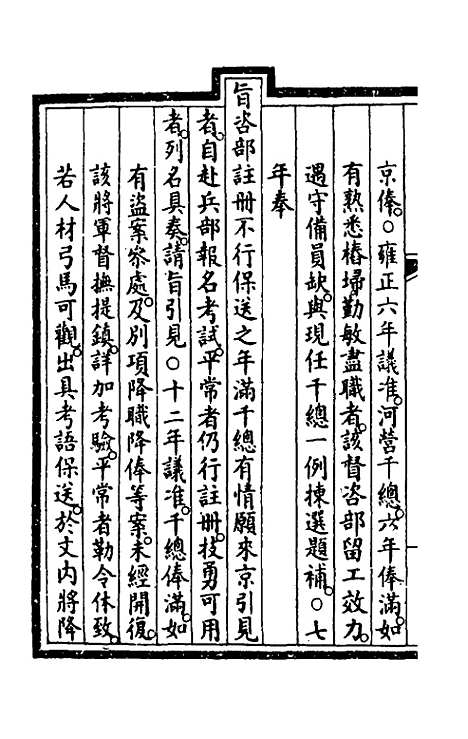 京俸○雍正六年議准河營千總六年俸滿如
有熟悉樁埽勤敏盡職者該督咨部留工效力
遇守備員缺與現任千總一例揀選題補○七
年奉
旨咨部註册不行保送之年滿千總有情願來京引見
者自赴兵部報名考試平常者仍行註册技勇可用
者列名具奏請旨引見○十二年議准千總俸滿如
有盜案叅處及別項降職降俸等案未經開復
該將軍督撫提鎮詳加考驗平常者勒令休致
若人材弓馬可觀出具考語保送於文内將降